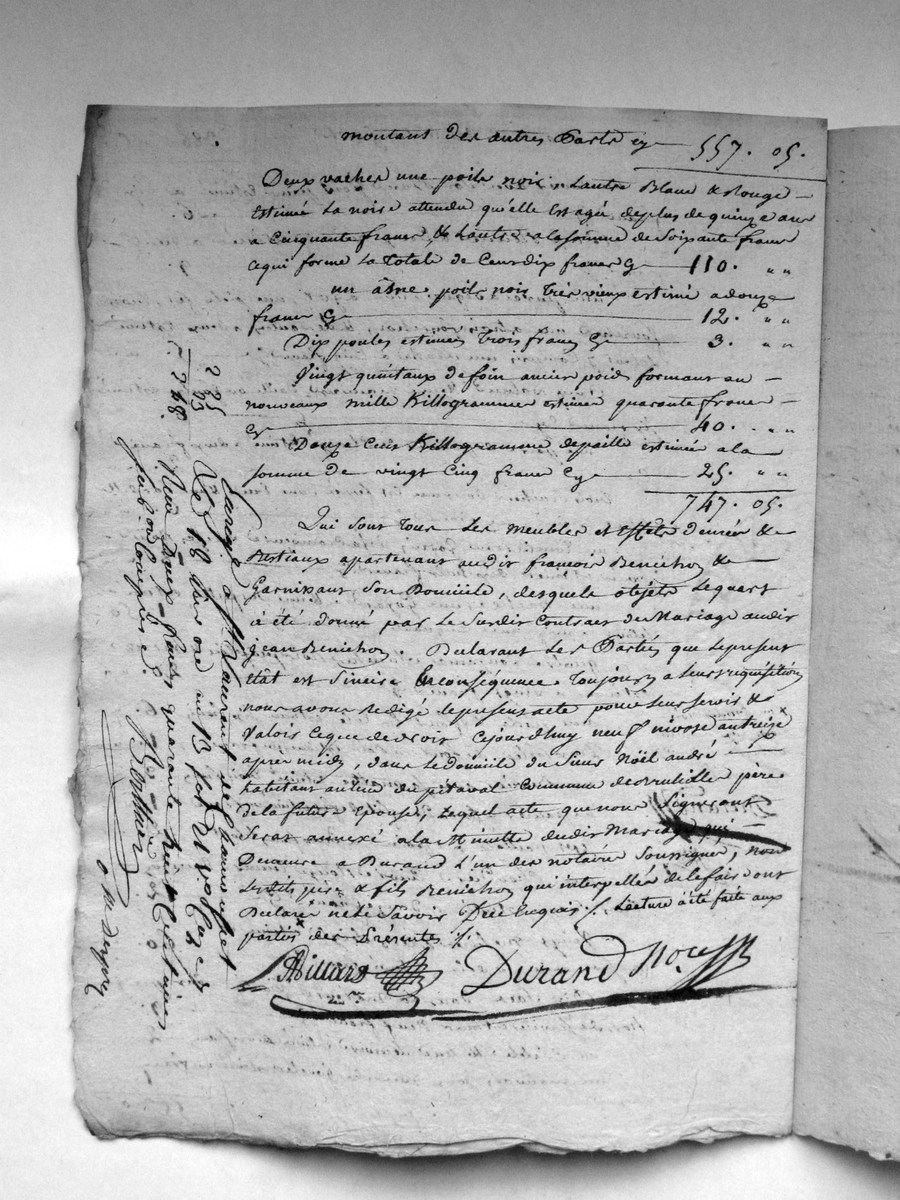 montant des autres Parts cy 557. 05.
Deux vaches une poils noir, Lautre Blanc & Rouge
Estimé La noire attendu qu'elle Est agée deplus de quinze ans
a Cinquante francs & Lautre a la somme de Soixante francs
cequi forme La Totale de Cent dix francs Cy 110. " "
un âsne poils nois Très vieux estimé a douze
francs Cy 12. " "
Dix poules estimées Trois francs Cy 3. " "
Vingt quintaux de foin ancien poid formant au
nouveaux mille Killogramme estimée quarante francs
Cy 40. " "
Douze Cent Killogramme depaille estimée a la
somme de vingt Cinq francs Cy 25. " "
747. 05.
Qui sont Tous Les meubles et Effets denrées &
Bestiaux apartenant audit françois Benichon &
Garnissant Son Domicile, desquels objets Lequart
à été donné par Le Susdit Contract de Mariage audit
jean Benichon. Declarant Les Parties que Lepresent
Etât est Sincère En conséquence Toujours a Leurs requisition
nous avons Redigé Lepresent acte pour Leur Servir &
Valoir Ceque de droit Cejourd'huy neuf nivose an treize
après midy, dans Le domicile du Sieur Nöel andré
habitant au Lieu du petaval Commune de père
dela future Epouse, Lequel acte que nous Signerons
Seras annexé ala Minutte dudit Mariage qui
Demeure a Durand L'un des notaire Soussigner, non
Lesdits père & fils Benichon qui interpellés de le faire ont
Declaré ne le Savoir Dece Enquis /. Lecture à été faite aux
partis des Présentes /.
Durand Nore
2 25
23
2 48
Enregé a St Laurent de Chamousset
Le 18 nivose an 13
Reçu Deux francs quarante huit Centimes